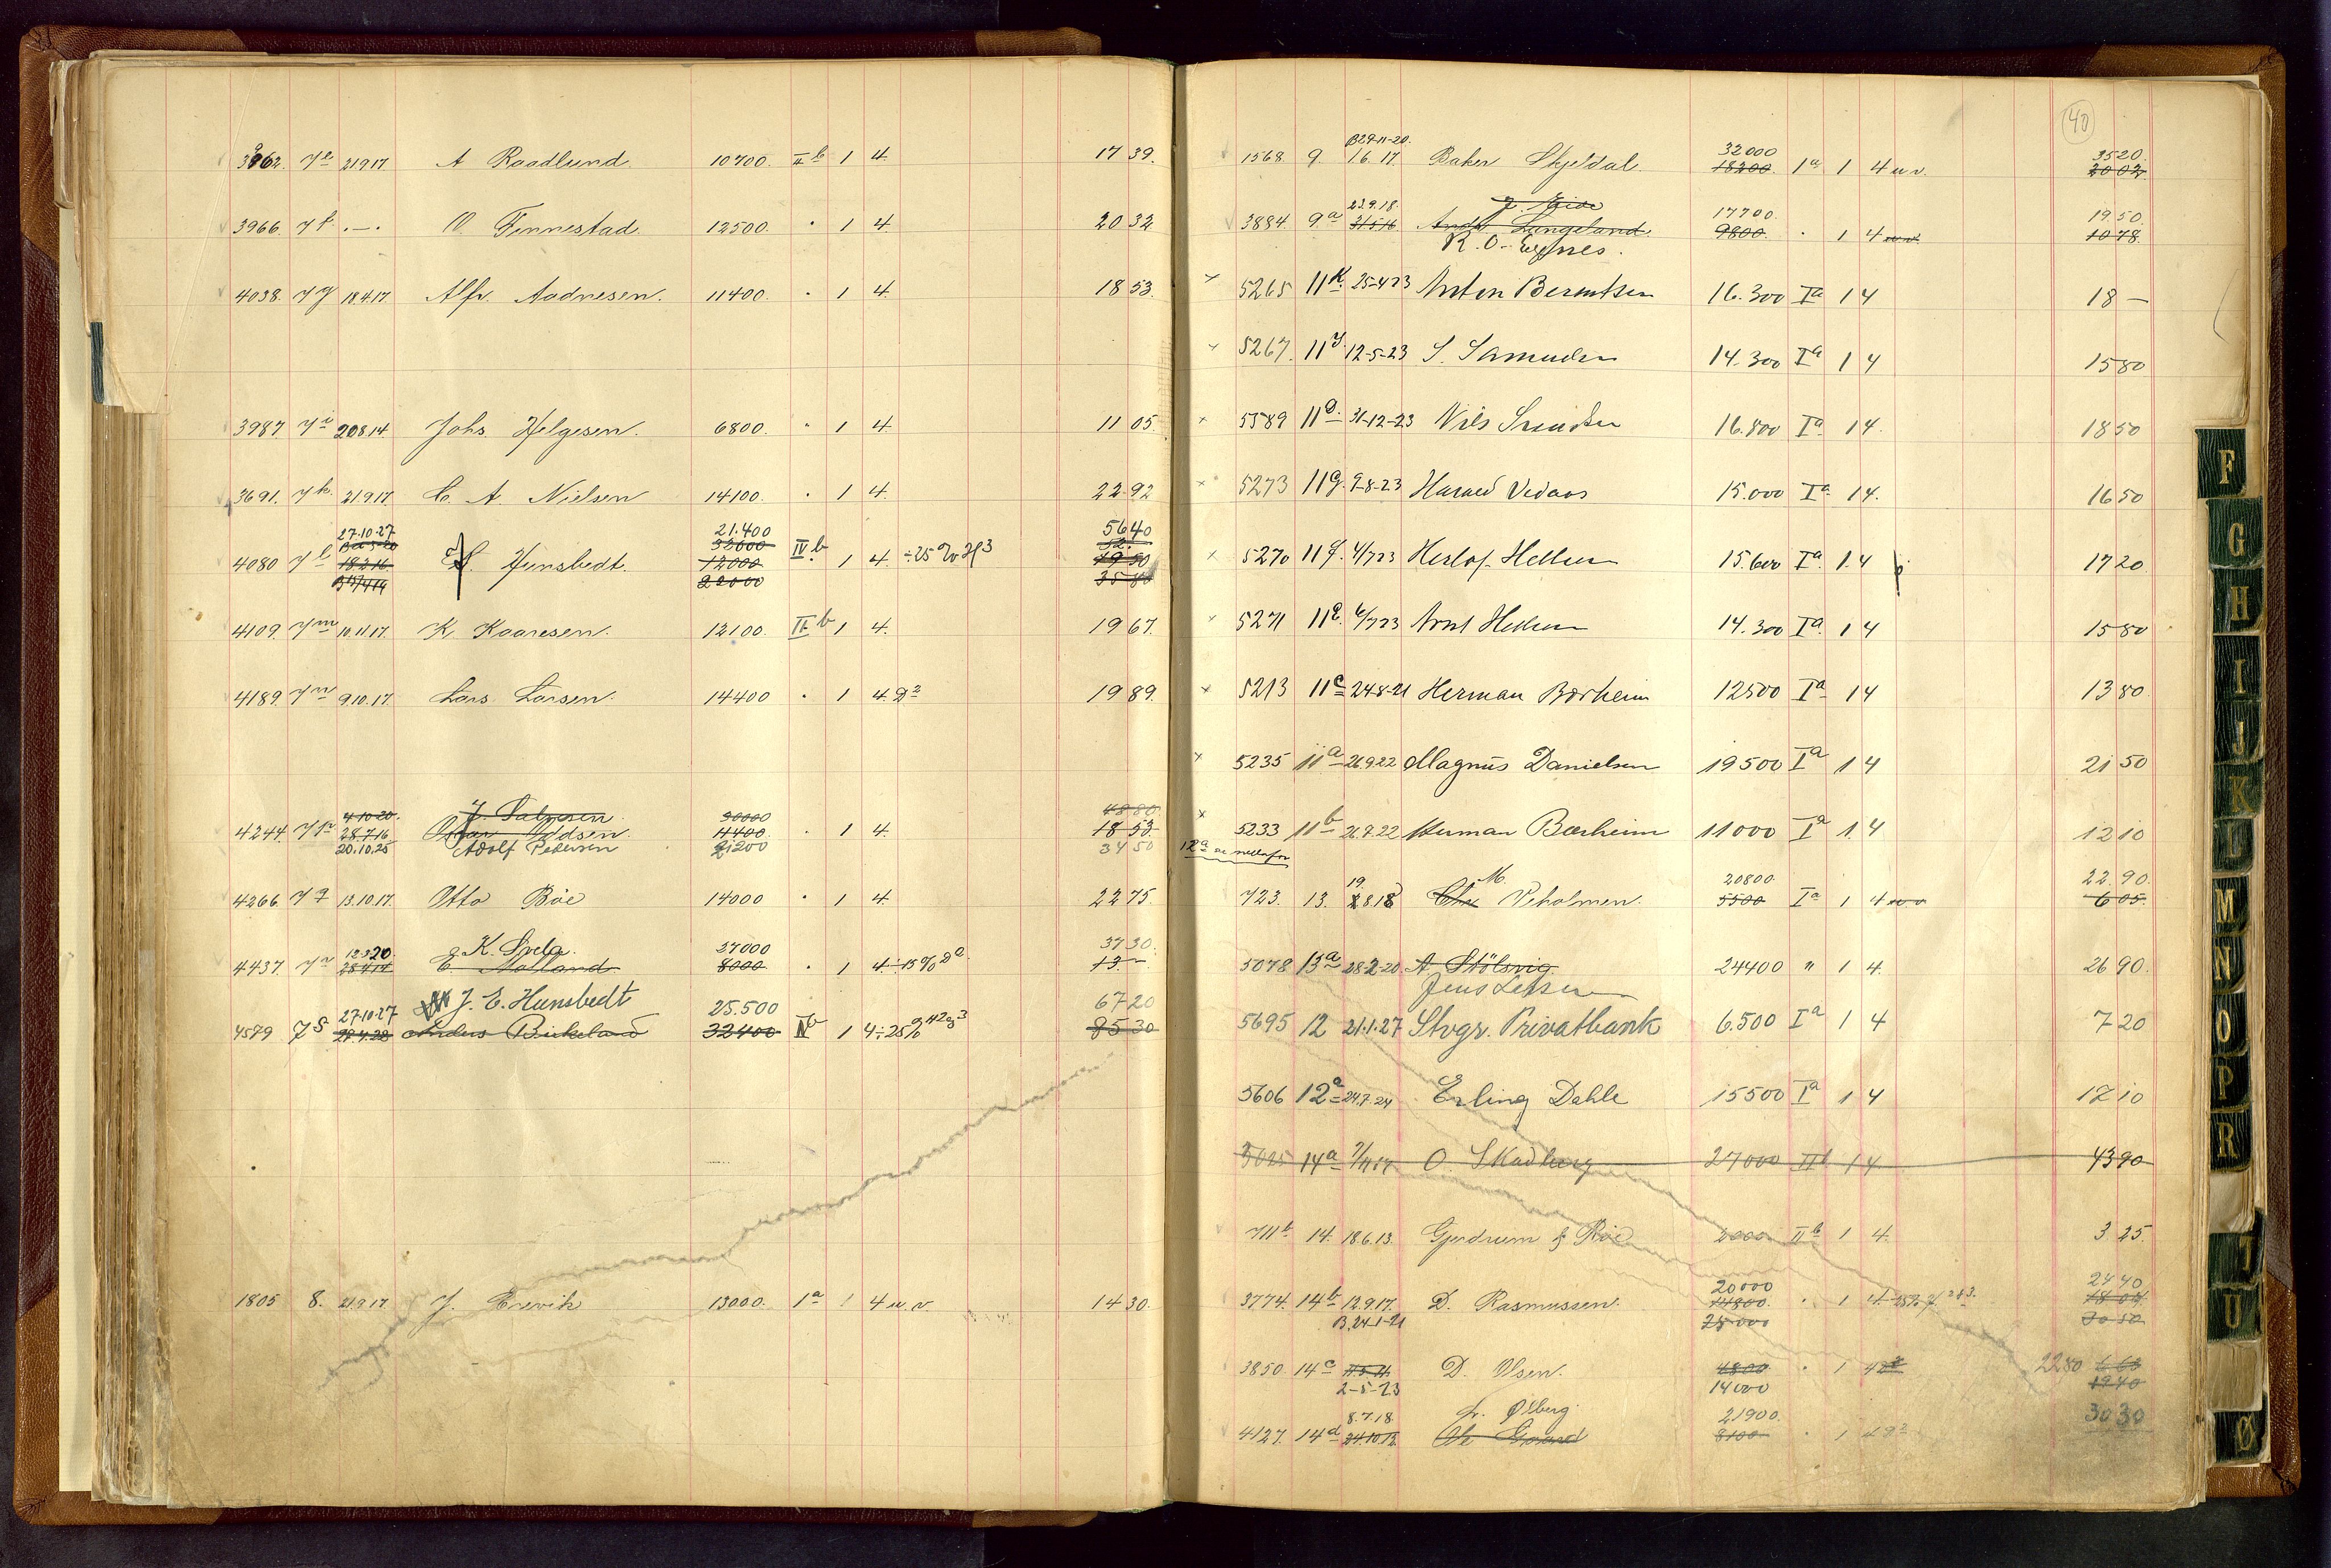 3962. 7e 21.9.17 A Raadlund. 10700. IIb 1 4. 17 39.
3966. 7f . — . O. Finnestad 12500. " 1 4. 20 32
4038. 7g 18.4.17. Alfr. Aadnesen. 11400. " 1 4. 18 53.
3987 7i 20.8.14. Johs. Helgesen. 6800. " 1 4. 11 05.
3691. 7k. 21.9.17. C. A. Nielsen 14100. " 1 4. 22 92
27.10.27 21.400 56 40
32600 52.
4080 7l 18.2.16. Hunsbedt. 12000 IVb 1 4. ÷25 % H3 19 50
22000 35 80
4109. 7m 10.11.17. K. Kaaresen. 12100. IIb 1 4. 19 67.
4189. 7n 9.10.17. Lars Larsen. 14400 " 1 4. D2 19 89.
4.10.20. 30000 48 80
4244. 28.7.16. 11400. " 1 4. 18 53.
20.10.25 Adolf Petersen 21200 34 50
4266. 7q 13.10.17. Otto Bøe 14000 " 1 4. 22 75.
12.3.20. K. 27000 37 30.
4437 7r 28.4.14 8000 " 1 4. ÷ 15 % 13 —
27.10.27 J. E. Hunsbedt 25.500 67 20
4579 7s Anders Birkeland 32400 IVb 1 4 ÷ 25 % 85 30
1805 8. 21.9.17. J. Ervik 13000. 1a 1 4 u.v. 14 30.
40
B29-11-20. 32000 35 20.
1568. 9. 1.6.17. Baker Skjeldal. 18200. 1a 1 4 u.v. 20 02.
23.9.18. 17700. 19.50.
3884. 9a 31.5.16 Langeland. 9800. " 1 4 10 78.
K. O.
5265 11k 25-4-23 Anton Berentsen 16.300 Ia 1 4 18 —
5267. 12-5-23 S. 14.300 Ia 1 4 15 80
5589 31-12-23 Nils 16.800 Ia 1 4. 18 50
5273 11g. 9-8-23 Harald Vedaas 15.000 Ia 1 4. 16 50
5270 11f. 4/7 23 15.600 Ia 1. 4 17 20
5271 11e. 6/7 23 14.300 Ia 1 4 15 80
5213 11c 24.8-21 Herman Bærheim 12500 Ia 1 4 13 80.
5235 11a 26.9.22 Magnus Danielsen 19500 Ia 1 4 21 50
5233 11b 21.9.22 Herman Bærheim 11000 Ia 1 4 12 10
12a se nedenfor
19. M. 20800. 22. 90.
723. 13. 8 18 Veholmen. 5500 Ia 1 4 6 05.
5078 13a 28.2-20. A. Stölsvig. 24400 " 1 4. 26 90.
Jens
5695 12 21.1.27 Stvgr. Privatbank 6.500 Ia 1 4 7 20
5606 12a 24.7.24 Erling Dahle 15500 Ia 1 4 17 10
14a O. Skadberg 27000 IIb 1 4 43 90
711b 14. 18.6.13. Gjedrum & Röe 2000 IIb 1 4. 3 25.
20000 24 40
3774. 14b 12.9.17. D. Rasmussen. 14800. " 1 4.
B. 24-1-21 25000 30 50
3850 14c D. Olsen. 4800 " 1 4 22 80
2-5-23 14000 19 40
8.7.18. Ølberg. 21900. 30 30
4127. 14d 24.10.12. 8100 " 1
F
G
H
I
J
K
L
M
N
O
P
R
T
U
Ø